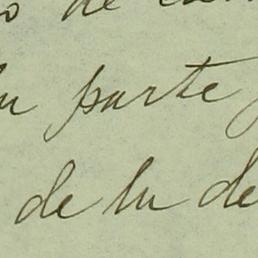 de
la parte
de la de